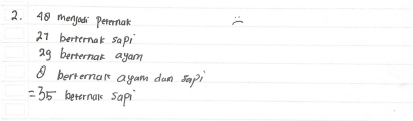 2. 48 menjadi peternak
27 berternak sapi
29 berternak ayam
8 berternak ayam dan sapi
=35 beternak sapi